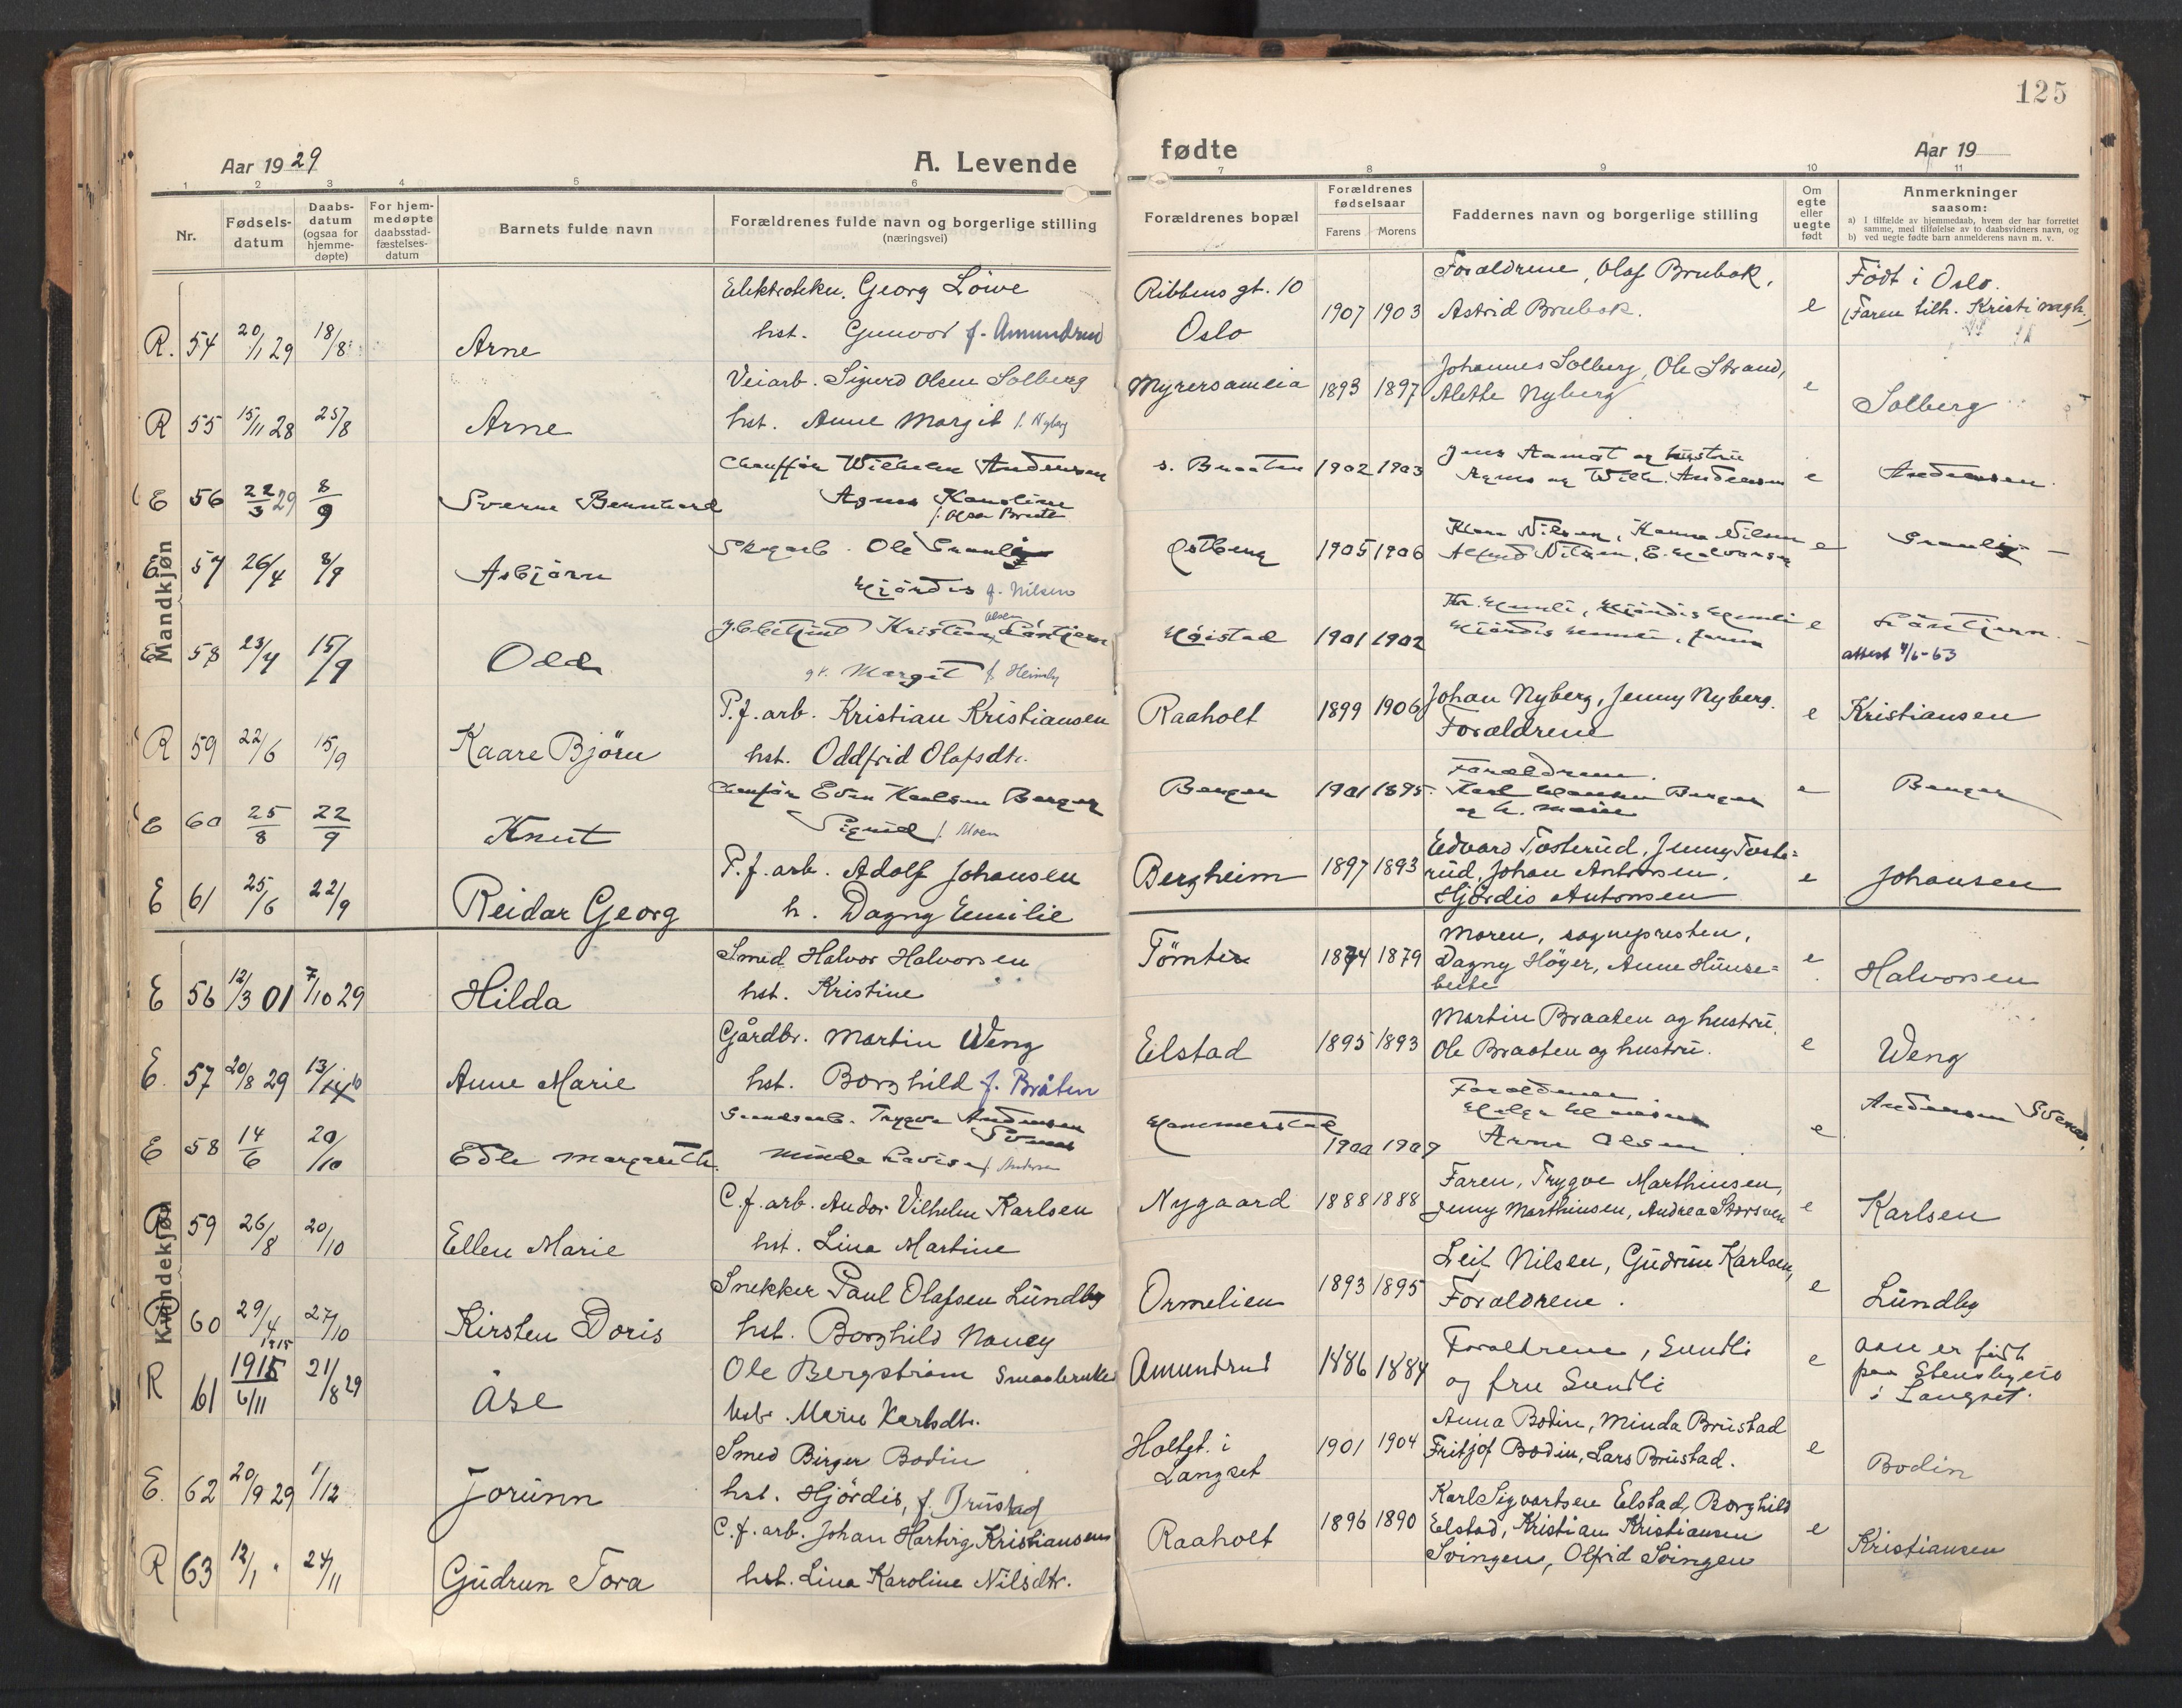 125
Aar 1929 A. Levende fødte Aar 19
1 2 3 4 5 6 7 8 9 10 11
Nr. Fødsels-datum Daabs-datum (ogsaa for hjemme-døpte) For hjem-medøpte daabsstad-fæstelses-datum Barnets fulde navn Forældrenes fulde navn og borgerlige stilling (næringsvei) Forældrenes bopæl Forældrenes fødselsaar Farens Morens Faddernes navn og borgerlige stilling Om egte eller uegte født Anmerkninger saasom:
a) I tilfælde av hjemmedaab, hvem der har forrettet samme, med tilføielse av to daabsvidners navn, og
b) ved uegte fødte barn anmelderens navn m. v.
Mandkjøn
R. 54 20/1 29 18/8 Arne Georg Löwe
hst. Gunvor f. Amundrud
Ribbens gt. 10
Oslo 1907 1903 Forældrene, Olaf Brubak,
Astrid Brubak. e Født i Oslo.
(Faren tilh. Kristi
R 55 15/11 28 25/8 Arne Veiarb. Sigurd Olsen Solberg
hst. Anne Margit f. Nyberg
1893 1897 Johannes Solberg, Ole Strand,
Alethe Nyberg e Solberg
E 56 22/3 29 8/9 Sverre Bernhard Chauffør Wilhelm Andersen
Agnes Karoline
s. Braaten 1902 1903 Jens Aamot og hustru
Agnes og Wilh. Andersen e Andersen
E 57 26/4 8/9 Asbjørn Skogarb. Ole
Hjørdis f. Nilsen
Østberg 1905 1906 Nilsen, Nilsen
Nilsen, E. Halvorsen e
E 58 23/4 15/9 Odd Kristian Olsen
Margit f. Heimly
Høistad 1901 1902 Hjørdis
Hjørdis faren e
attest 4/6-53
R 59 22/6 15/9 Kaare Bjørn P.f. arb. Kristian Kristiansen
hst. Oddfrid Olafsdtr.
Raaholt 1899 1906 Johan Nyberg, Jenny Nyberg.
Forældrene e Kristiansen
E 60 25/8 22/9 Knut Chauffør Even Karlsen Berger
Sigrid f. Moen
Berger 1901 1895 Forældrene.
Karl Berger
og h. Marie e Berger
E 61 25/6 22/9 Reidar Georg P.f. arb. Adolf Johansen
h. Dagny Emilie
Bergheim 1897 1893 Edvard Tosterud, Jenny Toste=
rud, Johan Antonsen.
Hjørdis Antonsen e Johansen
Kvindekjøn
E 56 12/3 01 7/10 29 Hilda Smed Halvor Halvorsen
hst. Kristine
Tømte 1874 1879 Moren, sognepresten,
Dagny Høyer, Anne Hunse=
beite e Halvorsen
E. 57 20/8 29 13/10 Anne Marie Gårdbr. Martin Weng
hst. Borghild f. Bråten
Eilstad 1895 1893 Martin Braaten og hustru.
Ole Braaten og hustru. e Weng
E 58 14/6 20/10 Edle Margareth. Trygve Andersen
Svenas
Minda Lovise f. Andersen
Hammerstad 1900 1907 Forældrene
Arne Olsen e Andersen Svenas.
R 59 26/8 20/10 Ellen Marie C.f. arb. Andor Vilhelm Karlsen
hst. Lina Martine
Nygaard 1888 1888 Faren, Trygve Marthinsen,
Jenny Marthinsen, Andrea Storsveen e Karlsen
R 60 29/4 27/10 Kirsten Doris Snekker Paul Olafsen Lundby
hst. Borghild Nancy
Ormelien 1893 1895 Leif Nilsen, Gudrun Karlsen,
Forældrene. e Lundby
R 61 1915 1915 6/11 21/8 29 Åse Ole Bergstrøm Smaabruker
hst. Marie Karlsdtr.
Amundrud 1886 1884 Forældrene, Sundli
og fru Sundli e er født
paa Stensbyeie
i Langset.
E. 62 20/9 29 1/12 Jorunn Smed Birger Bodin
hst. Hjørdis, f. Brustad
Holtgt. i
Langset 1901 1904 Anna Bodin, Minda Brustad
Fritjof Bodin, Lars Brustad. e Bodin
R 63 12/1 " 24/11 Gudrun Tora C.f. arb. Johan Hartvig Kristiansen
hst. Lina Karoline Nilsdtr.
Raaholt 1896 1890 Karl Sigvartsen Eilstad, Borghild
Eilstad, Kristian Kristiansen
Svingen, Olfrid Svingen e Kristiansen